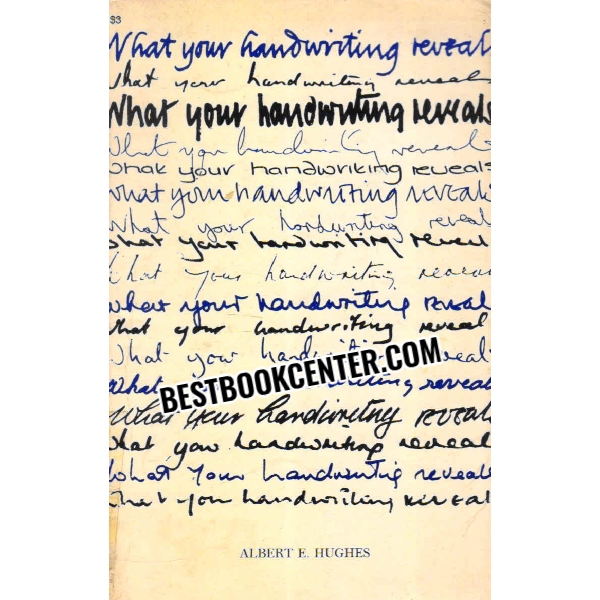 $3
What your handwriting reveals
What your handwriting reveals
What your handwriting reveals
What your handwriting reveals
What your handwriting reveals
What your handwriting reveals
What your handwriting reveal
What your handwriting reveal
What your handwriting reveal
What your handwriting reveal
What your handwriting reveal
What your handwriting reveal
BESTBOOKCENTER.COM
What writing reveal
What your handwriting reveals
What your handwriting reveal
What your handwriting reveals
What your handwriting reveal
ALBERT E. HUGHES